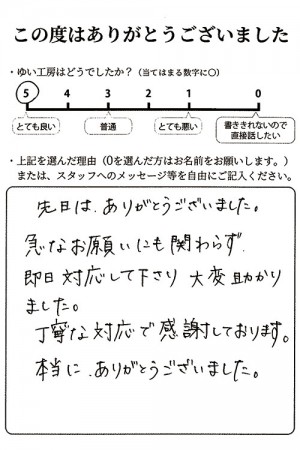 この度はありがとうございました
・ゆい工房はどうでしたか？（当てはまる数字に○）
5 4 3 2 1 0
とても良い 普通 とても悪い 書ききれないので直接話したい
・上記を選んだ理由（0を選んだ方はお名前をお願いします。）
または、スタッフへのメッセージ等を自由にご記入ください。
先日は、ありがとうございました。
急なお願いにも関わらず、
即日対応して下さり 大変助かり
ました。
丁寧な対応で感謝しております。
本当に、ありがとうございました。